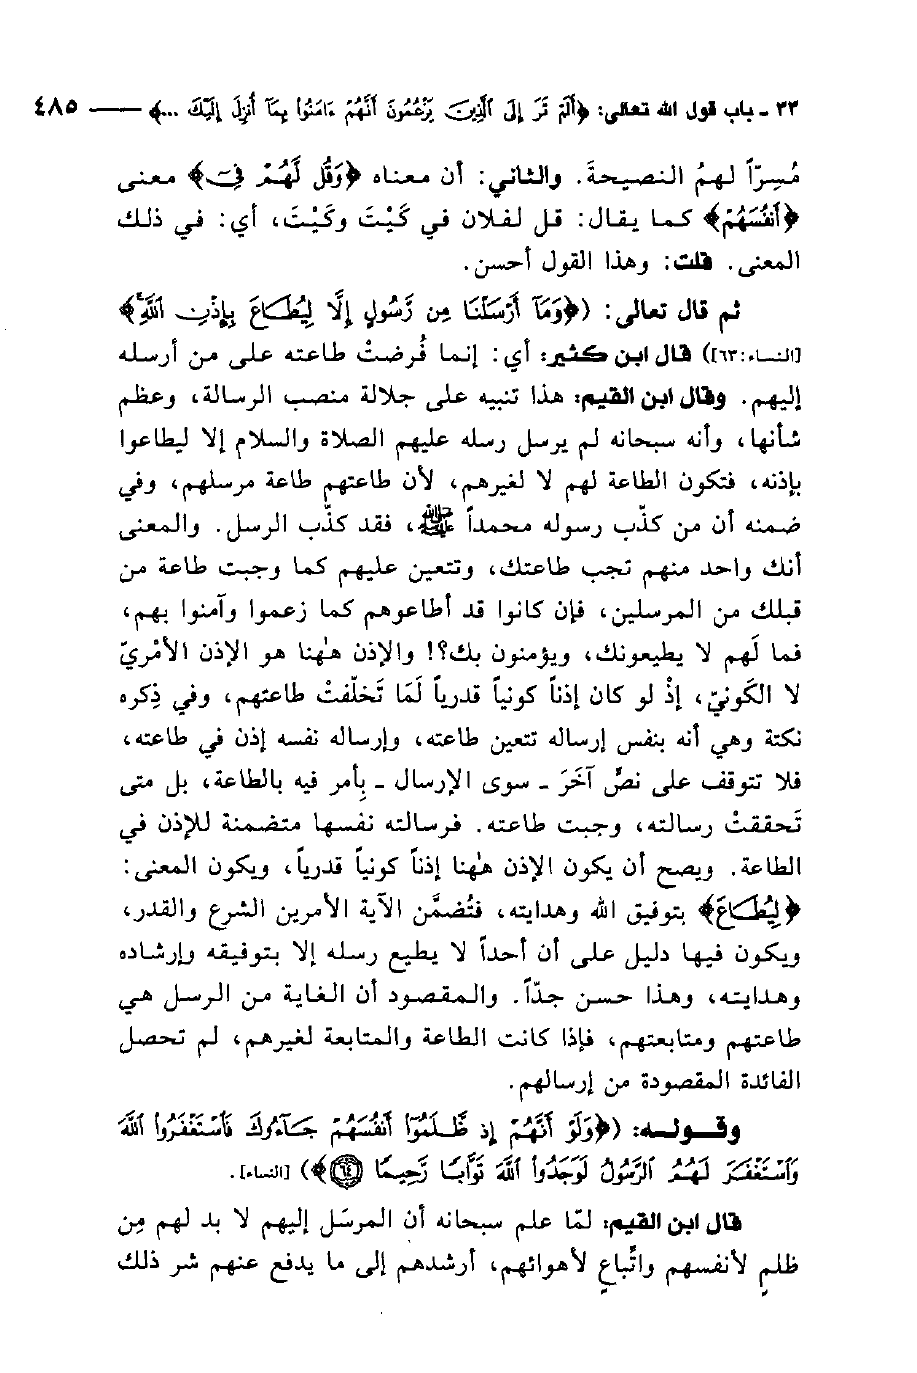 ٣٣ ـ باب قول الله تعالى: ﴿أَلَمْ تَرَ إِلَى الَّذِينَ يَزْعُمُونَ أَنَّهُمْ ءَامَنُوا بِمَآ أُنزِلَ إِلَيْكَ ...﴾ ــــــ ٤٨٥
مُسِرّاً لهمُ النصيحةَ. والثاني: أن معناه ﴿وَقُل لَّهُمْ فِىٓ﴾ معنى
﴿أَنفُسِهِمْ﴾ كما يقال: قل لفلان في كَيْتَ وكَيْتَ، أي: في ذلك
المعنى. قلت: وهذا القول أحسن.
ثم قال تعالى: (﴿وَمَآ أَرْسَلْنَا مِن رَّسُولٍ إِلَّا لِيُطَاعَ بِإِذْنِ اللَّهِ﴾
[النساء: ٦٣]) قال ابن كثير: أي: إنما فُرضتْ طاعته على من أرسله
إليهم. وقال ابن القيم: هذا تنبيه على جلالة منصب الرسالة، وعظم
شأنها، وأنه سبحانه لم يرسل رسله عليهم الصلاة والسلام إلا ليطاعوا
بإذنه، فتكون الطاعة لهم لا لغيرهم، لأن طاعتهم طاعة مرسلهم، وفي
ضمنه أن من كذّب رسوله محمداً ﷺ، فقد كذّب الرسل. والمعنى
أنك واحد منهم تجب طاعتك، وتتعين عليهم كما وجبت طاعة من
قبلك من المرسلين، فإن كانوا قد أطاعوهم كما زعموا وآمنوا بهم،
فما لَهم لا يطيعونك، ويؤمنون بك؟! والإذن هٰهنا هو الإذن الأمْريّ
لا الكَونيّ، إذْ لو كان إذناً كونياً قدرياً لَمَا تَخلّفتْ طاعتهم، وفي ذِكره
نكتة وهي أنه بنفس إرساله تتعين طاعته، وإرساله نفسه إذن في طاعته،
فلا تتوقف على نصٍّ آخَرَ ـ سوى الإرسال ـ يأمر فيه بالطاعة، بل متى
تَحققتْ رسالته، وجبت طاعته. فرسالته نفسها متضمنة للإذن في
الطاعة. ويصح أن يكون الإذن هٰهنا إذناً كونياً قدرياً، ويكون المعنى:
﴿لِيُطَاعَ﴾ بتوفيق الله وهدايته، فتُضمَّن الآية الأمرين الشرع والقدر،
ويكون فيها دليل على أن أحداً لا يطيع رسله إلا بتوفيقه وإرشاده
وهدايته، وهذا حسن جدّاً. والمقصود أن الغاية من الرسل هي
طاعتهم ومتابعتهم، فإذا كانت الطاعة والمتابعة لغيرهم، لم تحصل
الفائدة المقصودة من إرسالهم.
وقوله: (﴿وَلَوْ أَنَّهُمْ إِذ ظَّلَمُوٓا أَنفُسَهُمْ جَآءُوكَ فَاسْتَغْفَرُوا اللَّهَ
وَاسْتَغْفَرَ لَهُمُ الرَّسُولُ لَوَجَدُوا اللَّهَ تَوَّابًا رَّحِيمًا ٦٤﴾) [النساء].
قال ابن القيم: لمّا علم سبحانه أن المرسَل إليهم لا بد لهم مِن
ظلمٍ لأنفسهم واتِّباعٍ لأهوائهم، أرشدهم إلى ما يدفع عنهم شر ذلك